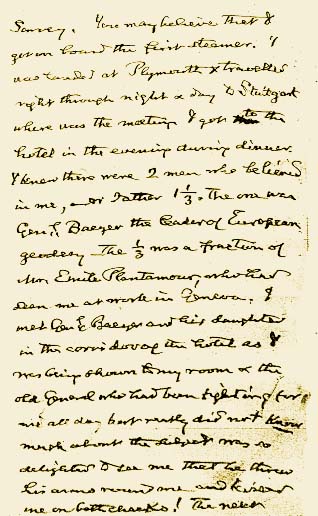 Survey. You may believe that I
got on board the first steamer. I
was landed at Plymouth & travelled
right through night & day to Stuttgart
where was the meeting I got to the
hotel in the evening during dinner.
I knew there were 2 men who believed
in me, or rather 1 1/3. The one was
Genl. Baeyer the leader of European
geodesy The 1/3 was a fraction of
Mon Emile Plantamour, who had
seen me at work in Geneva. I
met Genl Baeyer and his daughter
in the corridor of the hotel as I
was being shown to my room & the
old General who had been fighting for
me all day but really did not know
much about the subject was so
delighted to see me that he threw
his arms round me and kissed
me on both cheeks! The next